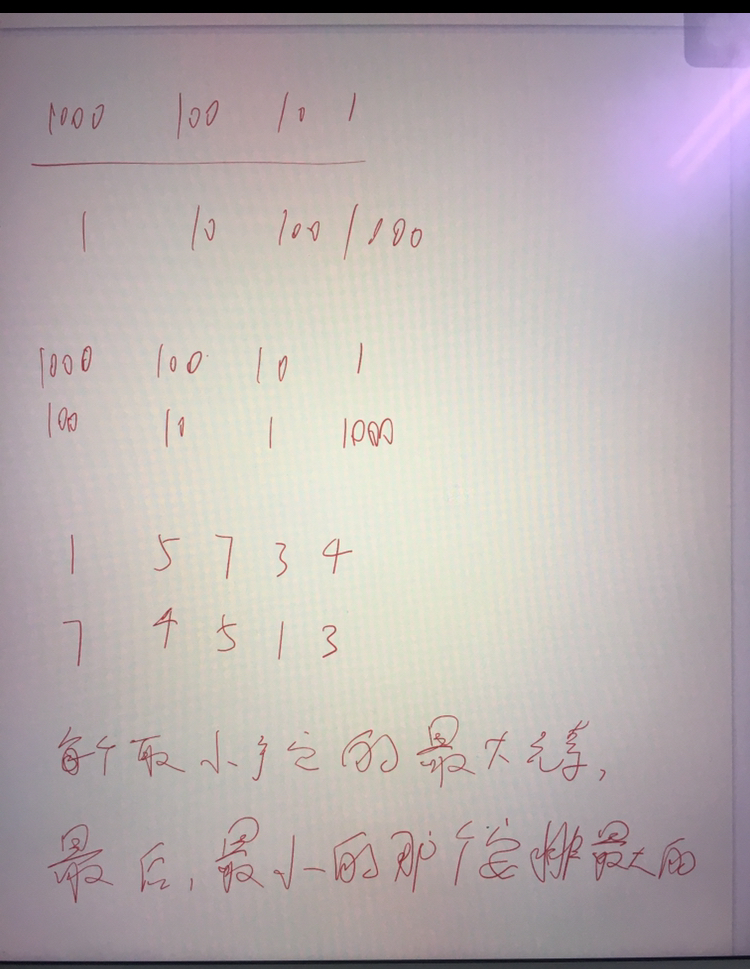 1000 100 10 1
1 10 100 1000
1000 100 10 1
100 10 1 1000
1 5 7 3 4
7 4 5 1 3
每个取小于它的最大元素,
最后,最小的那个安排最大的